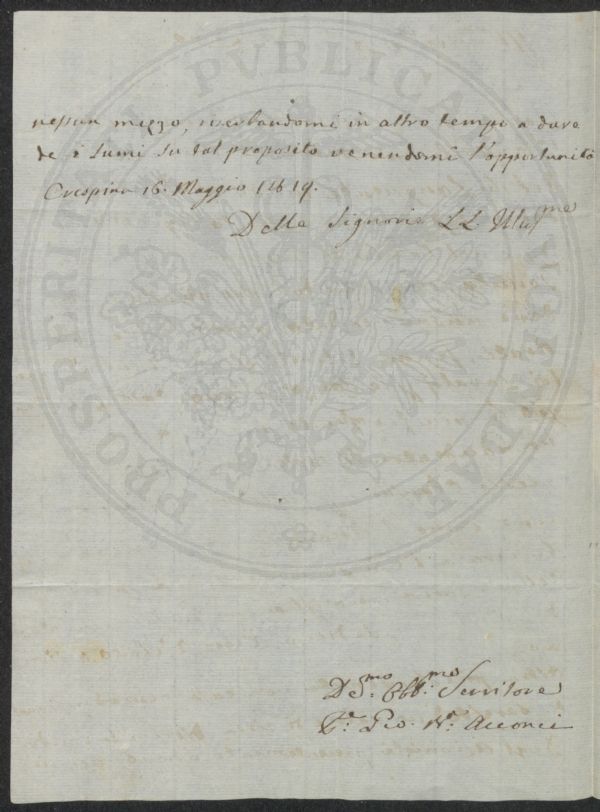 nessun mezzo, riserbandomi in altro tempo a dare
de i lumi su tal proposito venendomi l'opportunità
Crespina 16. Maggio 1819.
Delle Signorie LL. Ill.me
De.mo Obb.mo Servitore
Gio. Acconci
PROSPERITATI PVBLICAE AVGENDAE